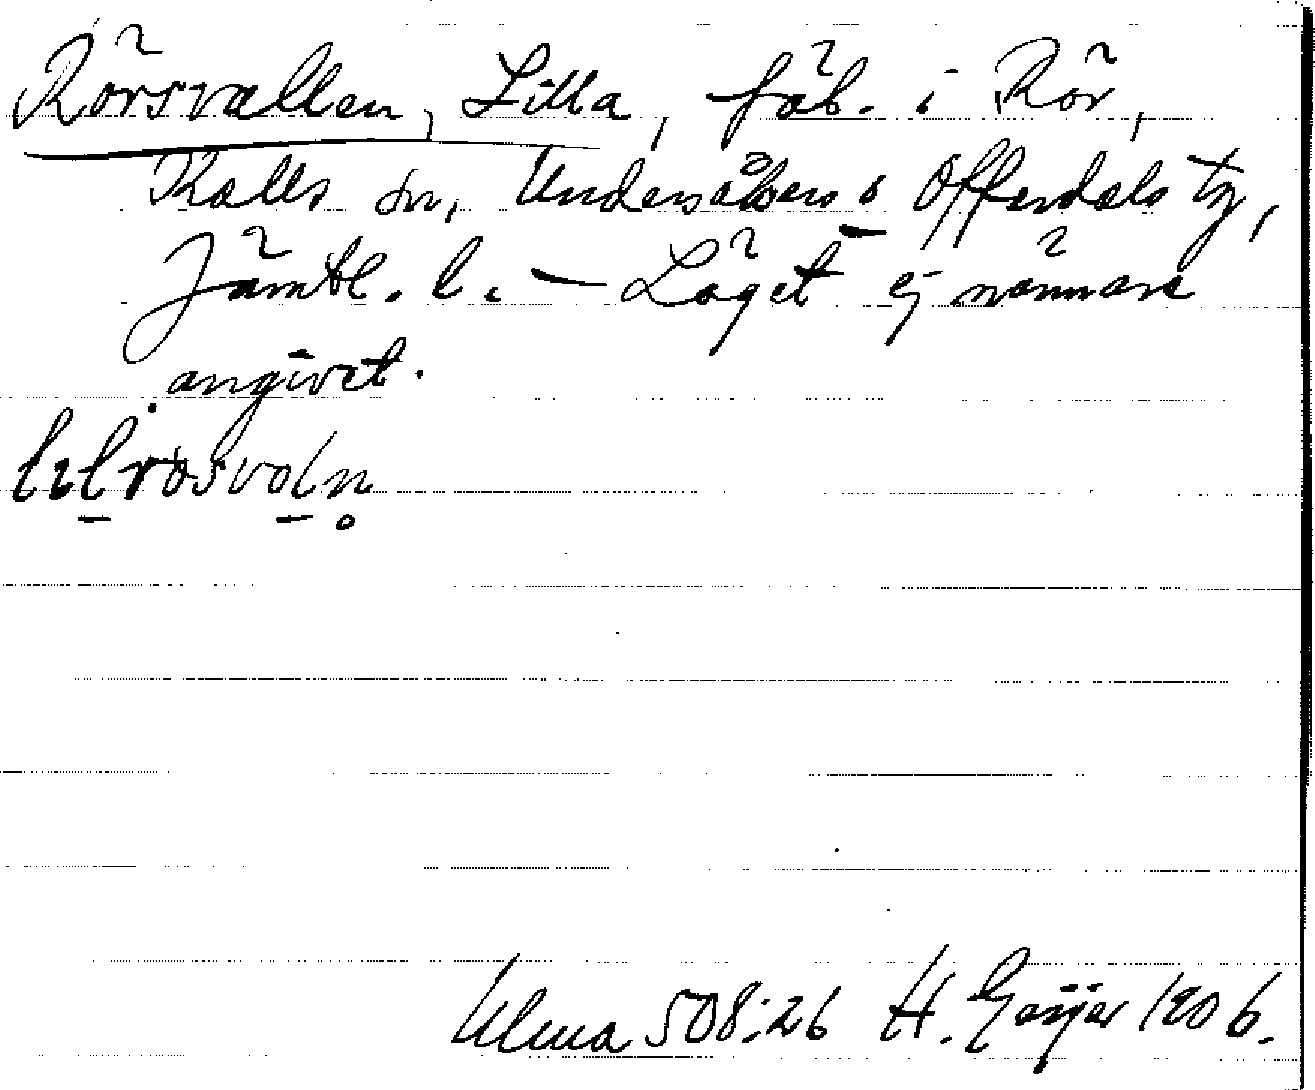 Rörsvallen, Lilla, fäb. i Rör,
Kalls sn, Undersåkers o Offerdals tg,
Jämtl. l. — Läget ej närmare
angivet.
lɪlrösvoln̥
Ulma 508:26 H. Geijer 1906.